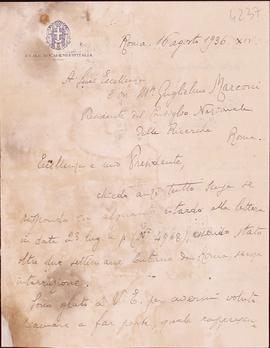 4237
REALE ACCADEMIA D'ITALIA
Roma, 16 agosto 1936 XIV
A Sua Eccellenza
Guglielmo Marconi
Presidente del Consiglio Nazionale
delle Ricerche
Roma.
Eccellenza e mio Presidente,
chiedo anzi tutto scusa se
rispondo con alquanto ritardo alla lettera
in data 23 lug. u. p. (N° 4968), essendo stato
oltre due settimane lontano da Roma, senza
interruzione.
Sono grato a V. E. per avermi voluto
chiamare a far parte, quale rappresen-